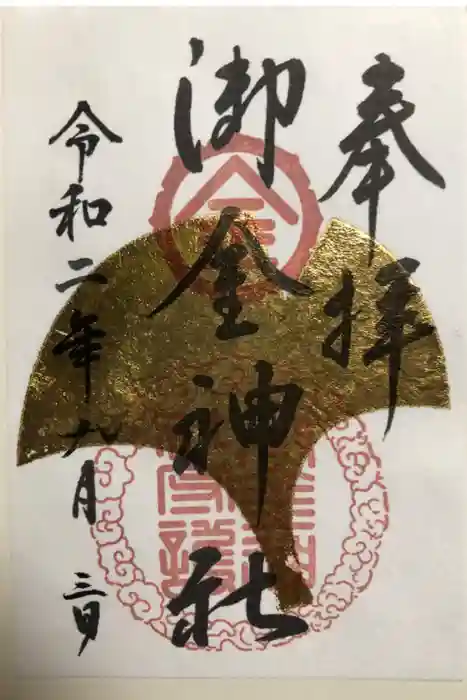 奉拝
御金神社
令和二年九月三日